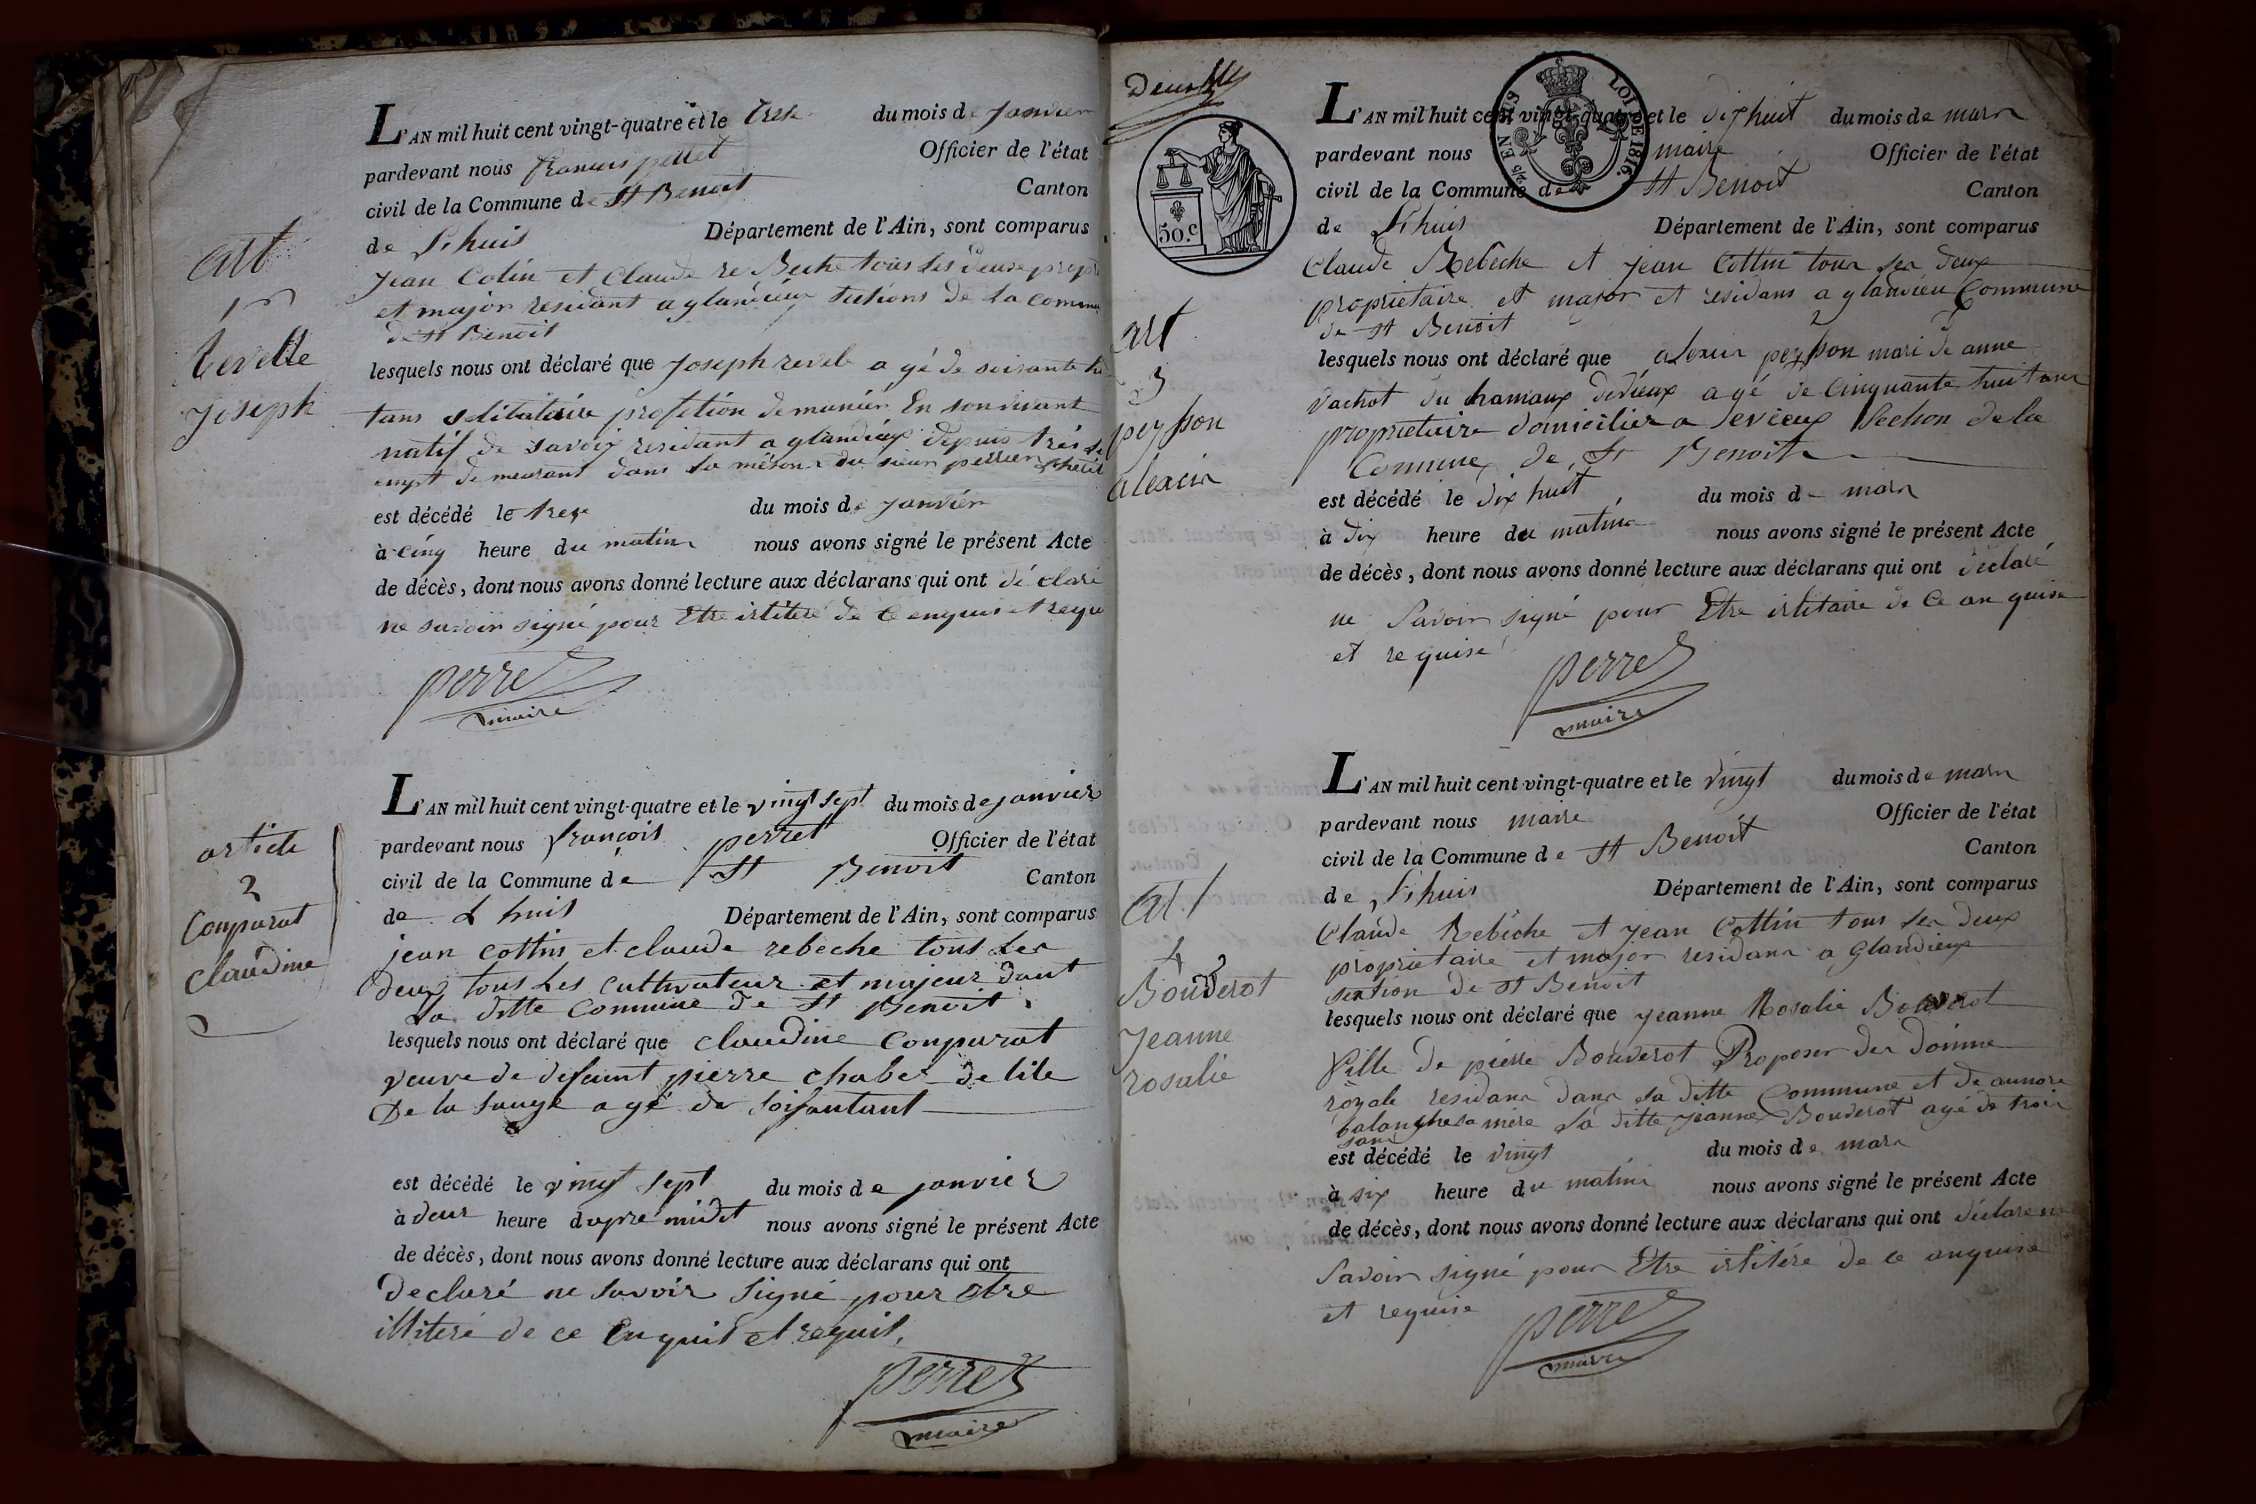 art
1er
Revelle
Joseph
L'AN mil huit cent vingt-quatre et le trese du mois de Janvier
pardevant nous francois perret Officier de l'état
civil de la Commune de St Benoit Canton
de Lhuis Département de l'Ain, sont comparus
Jean Cotin et Claude re Beche tous les deux propr
et major residant a glandieux sections de la commu
de St Benoit
lesquels nous ont déclaré que Joseph revele a gé de soisante
tans selibataire profetion demanier En son vivant
natif de Savoix residant a glandieux depuis très
de meurant dans la méson du sieur perrier
est décédé le treze du mois de janvier
à cinq heure du matin nous avons signé le présent Acte
de décès, dont nous avons donné lecture aux déclarans qui ont dé claré
ne savoir signé pour Etre ilitéré de ce enquis et requi
perret
maire
article
2
Conparat
claudine
L'AN mil huit cent vingt-quatre et le vingt sept du mois de janvier
pardevant nous françois perret Officier de l'état
civil de la Commune de St Benoit Canton
de L huis Département de l'Ain, sont comparus
jean cottin et claude rebeche tous les
deux tous les cultivateur et majeur dant
la ditte commune de St Benoit.
lesquels nous ont déclaré que claudine Conparat
veuve de defeunt pierre chaber de lile
De la sauge a gé de soisantant
est décédé le vingt sept du mois de janvier
à deux heure daprre midet nous avons signé le présent Acte
de décès, dont nous avons donné lecture aux déclarans qui ont
declaré ne savoir signé pour etre
illiteré de ce enquis et requis,
perret
maire
50.c
LOI DE 1816.
EN SUS
art
3
peysson
alexcin
L'AN mil huit cent vingt-quatre et le dixhuit du mois de mars
pardevant nous maire Officier de l'état
civil de la Commune de St Benoit Canton
de Lhuis Département de l'Ain, sont comparus
Claude Rebeche et jean Cottin tous les deux
proprietaire et major et residans a glandieu Commune
de St Benoit
lesquels nous ont déclaré que alexcin peysson mari de anne
vachot du hamaux devieux agé de cinquante huit ans
proprietaire domicilier a Sevieux Section de la
Commune de St Benoit
est décédé le dix huit du mois de mars
à dix heure du matin nous avons signé le présent Acte
de décès, dont nous avons donné lecture aux déclarans qui ont déclaré
ne savoir signé pour Etre ilitaire de ce an quise
et requise
perret
maire
art
4
Bouderot
Jeanne
rosalie
L'AN mil huit cent vingt-quatre et le vingt du mois de mars
pardevant nous maire Officier de l'état
civil de la Commune de St Benoit Canton
de Lhuis Département de l'Ain, sont comparus
Claude Rebêche et jean Cottin tous les deux
proprietaire et major residans a Glandieux
section de St Benoit
lesquels nous ont déclaré que Jeanne Rosalie Bouderot
fille de pierre Bouderot Proposer des Doinne
royale residans dans la ditte Commune et de
mere la ditte Jeanne Bouderot agé de trois
sans
est décédé le vingt du mois de mars
à six heure du matin nous avons signé le présent Acte
de décès, dont nous avons donné lecture aux déclarans qui ont déclare ne
Savoir signé pour Etre ilitére de ce anquise
et requise
perret
maire